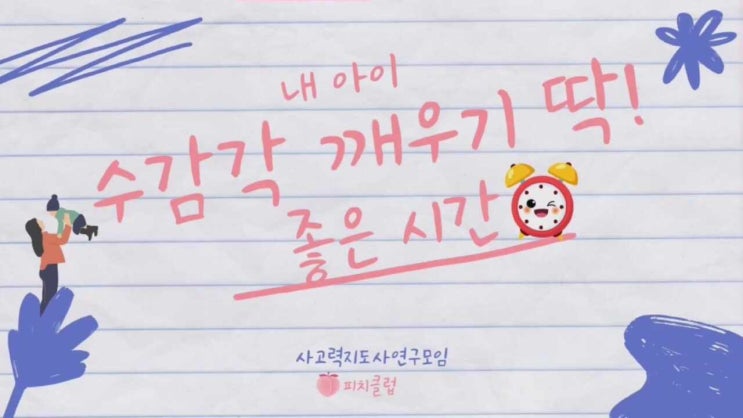 내 아이
수감각 깨우기 딱!
좋은 시간
사고력지도사연구모임
피치클럽